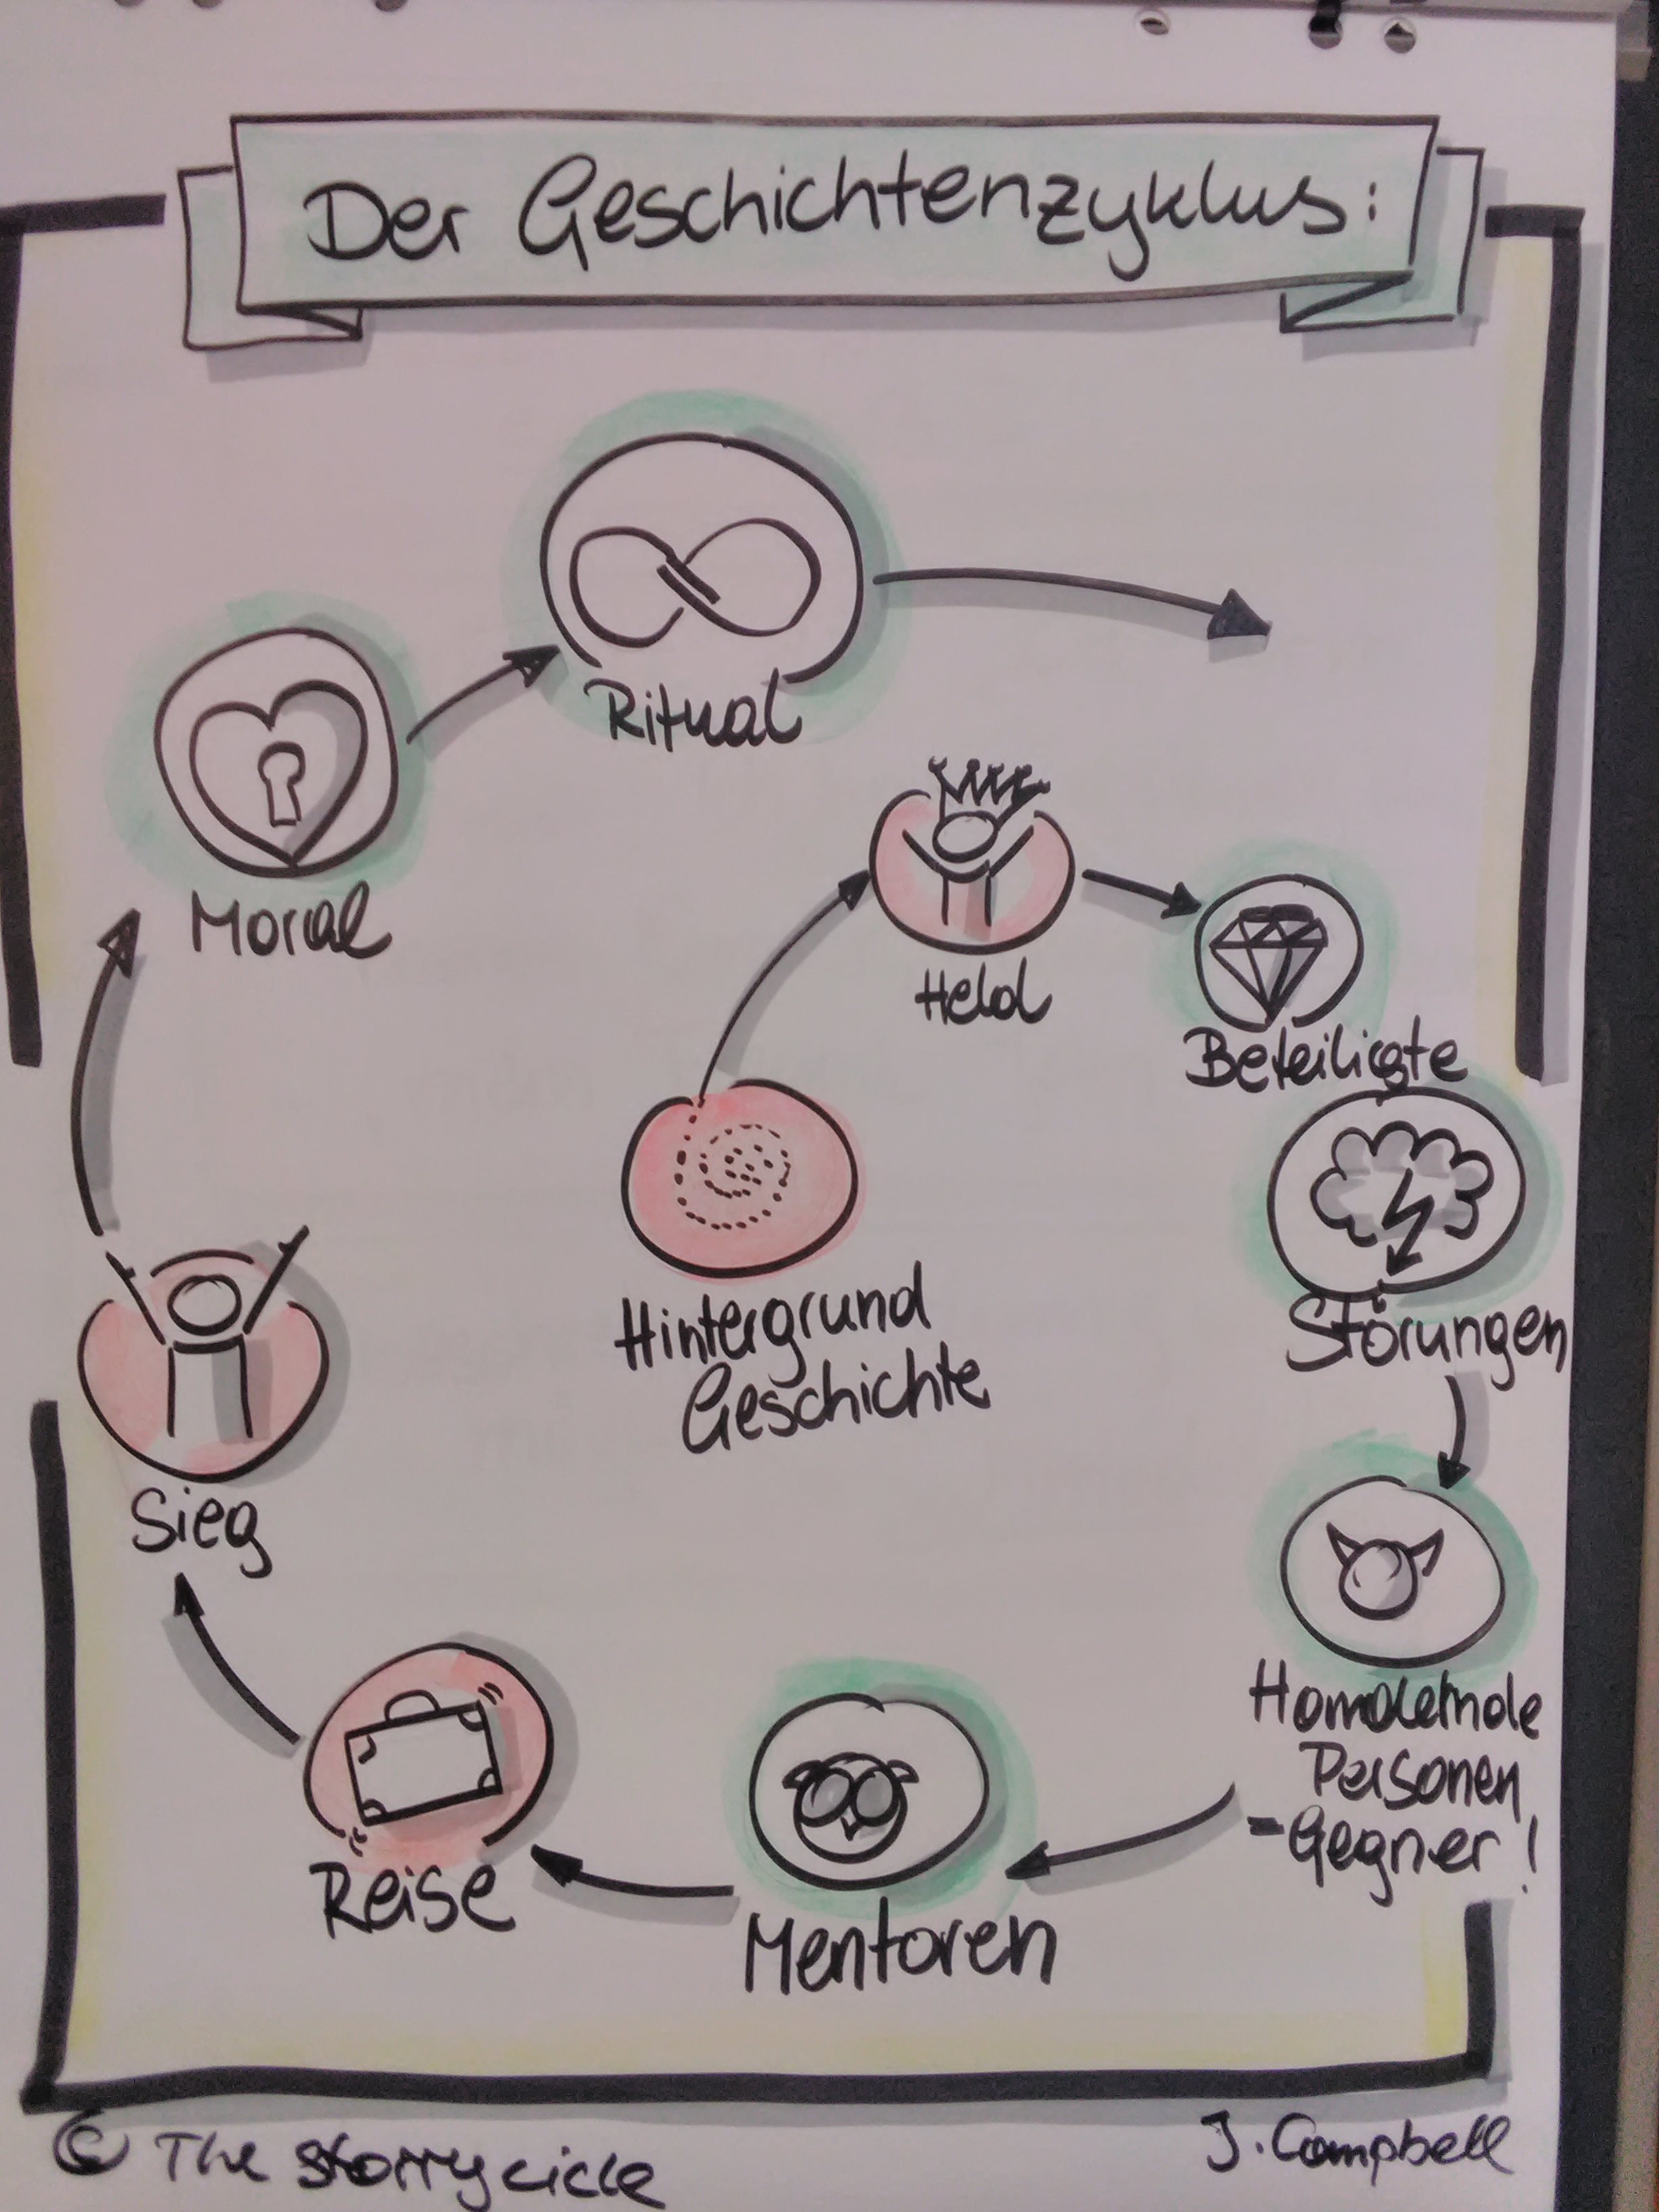 Der Geschichtenzyklus:
Ritual
Moral
Held
Beteiligte
Hintergrund
Geschichte
Störungen
Sieg
Homdelnde
Personen
-Gegner!
Reise
Mentoren
© The storry circle
J. Campbell